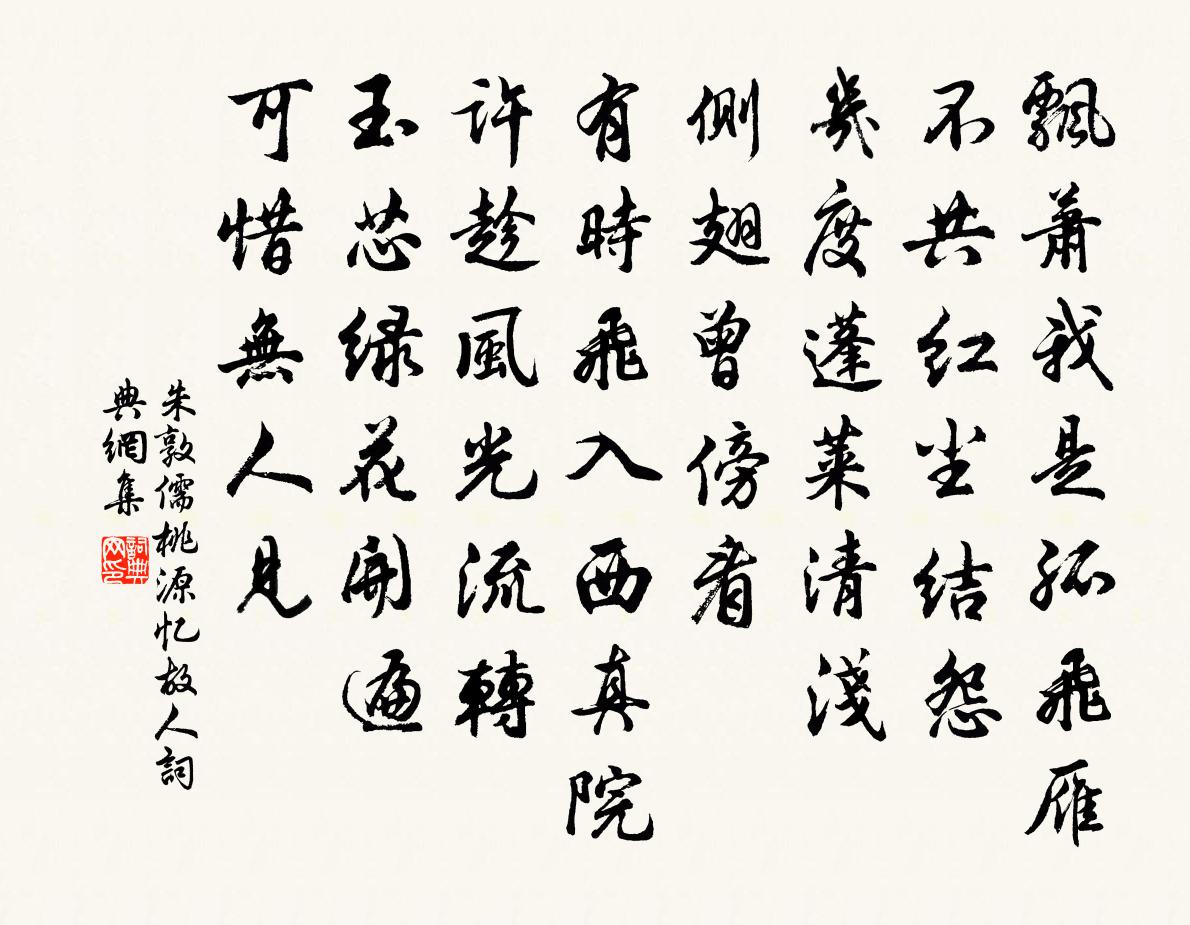 飄蕭我是孤飛雁
不共红尘结怨
幾度蓬萊清淺
側翅曾傍看
有時飛入西真院
許趁風光流轉
玉芯绿花開遍
可惜無人見
朱敦儒桃源忆故人詞
典網集
詞典
网印